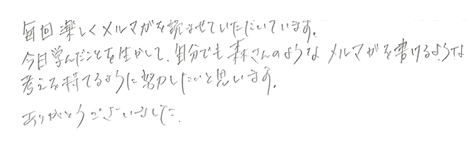 毎回楽しくメルマガを読ませていただいています。
今日学んだことを生かして、自分でも森さんのようなメルマガを書けるような
考えを持てるように努力したいと思います。
ありがとうございました。